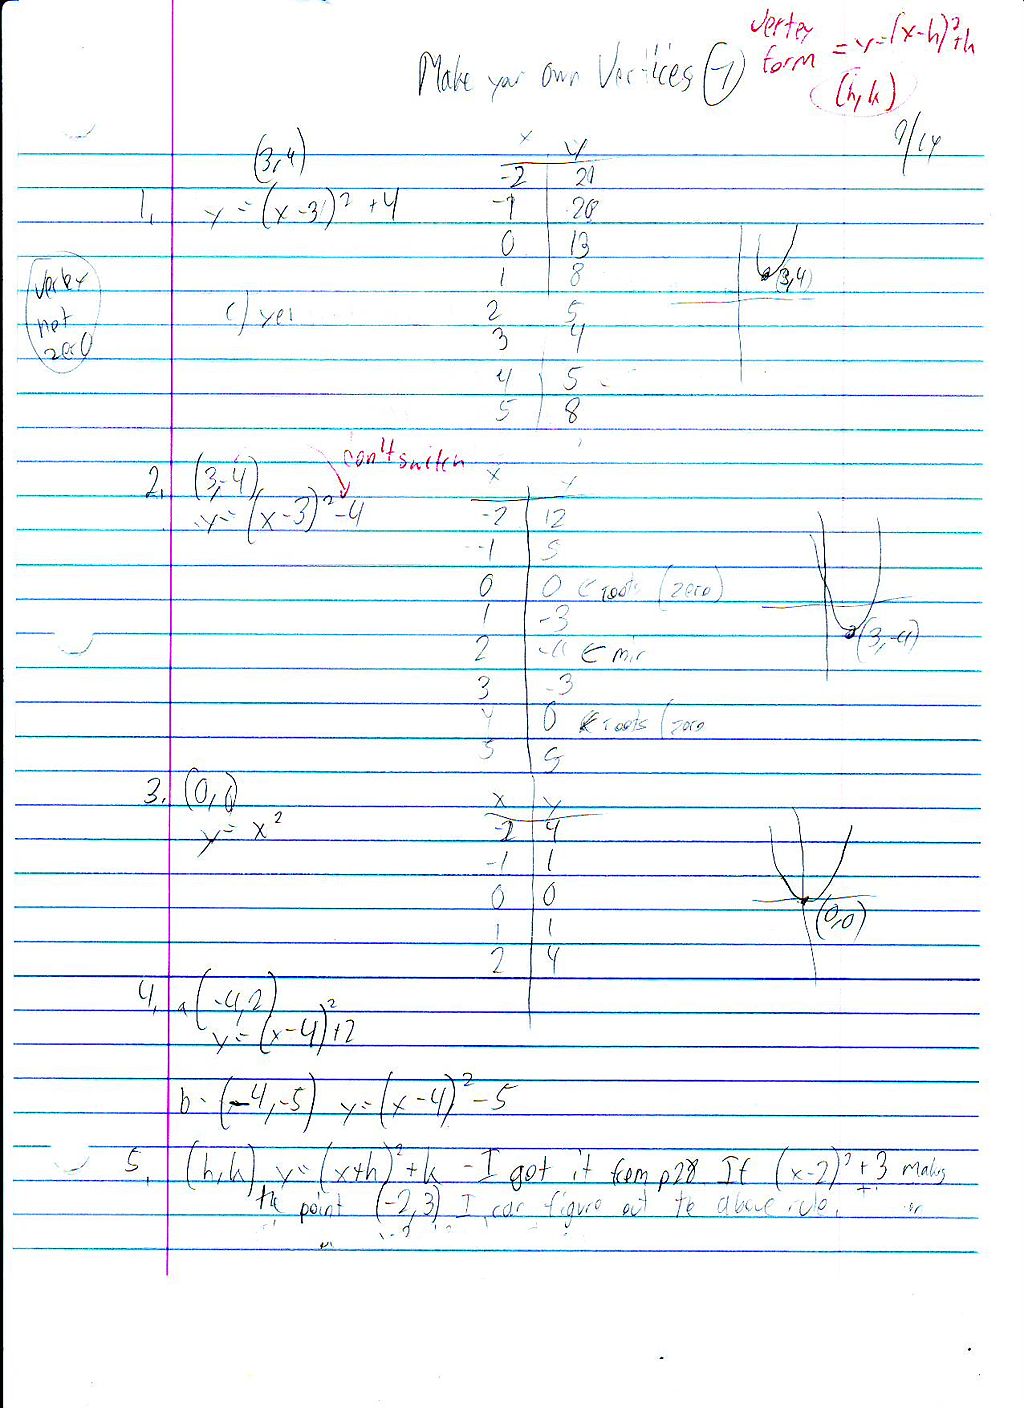 Vertex
form = y=(x-h)²+h
(h,k)
Make your own Vertices
9/14
(3,4)
1. y=(x-3)² +4
x y
-2
-1 20
0 13
1 8
2 5
3 4
4 5
5 8
(3,4)
vertex
not
zero
c) yes
can't switch
2. (3,-4)
y=(x-3)²-4
x y
-2 12
-1 5
0 0 ← roots (zero)
1 -3
2 -4 ← min
3 -3
4 0 ← roots (zero
5 5
(3,-4)
3. (0,0)
y= x²
x y
-2 4
-1 1
0 0
1 1
2 4
(0,0)
4. a (-4,2)
y=(x-4)²+2
b- (-4,-5) y=(x-4)²-5
5. (h,k) y=(x+h)²+k - I got it from p28 If (x-2)²+3 makes
the point (-2,3) I can figure out the above rule.